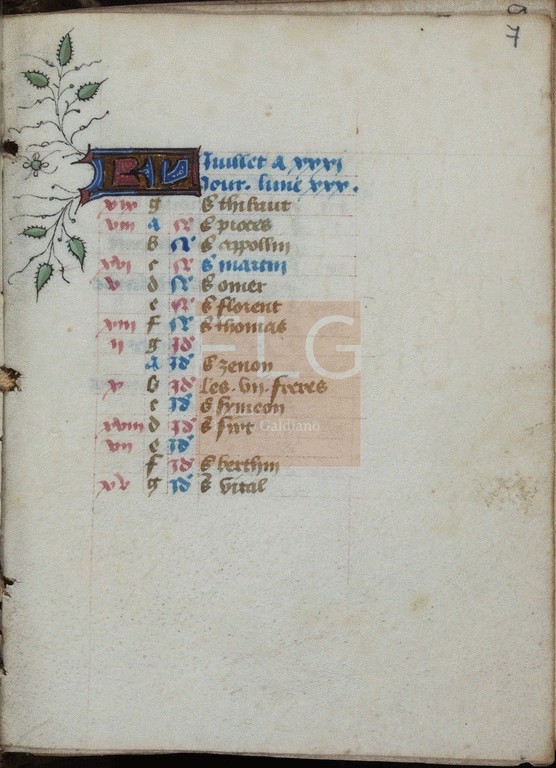 7
KL Juillet a xxxi
Jour. lune xxx.
xix g S thibaut
viii A N S proces
b N S appollin
xvi c N S martin
v d N S omer
e N S florent
xiii f N S thomas
ii g Id
A Id S zenon
x b Id Les. vii. freres
c Id S symeon
xviii d Id S sixt
vii e Id
f Id S berthin
xv g Id S vital
FLG
Galdiano